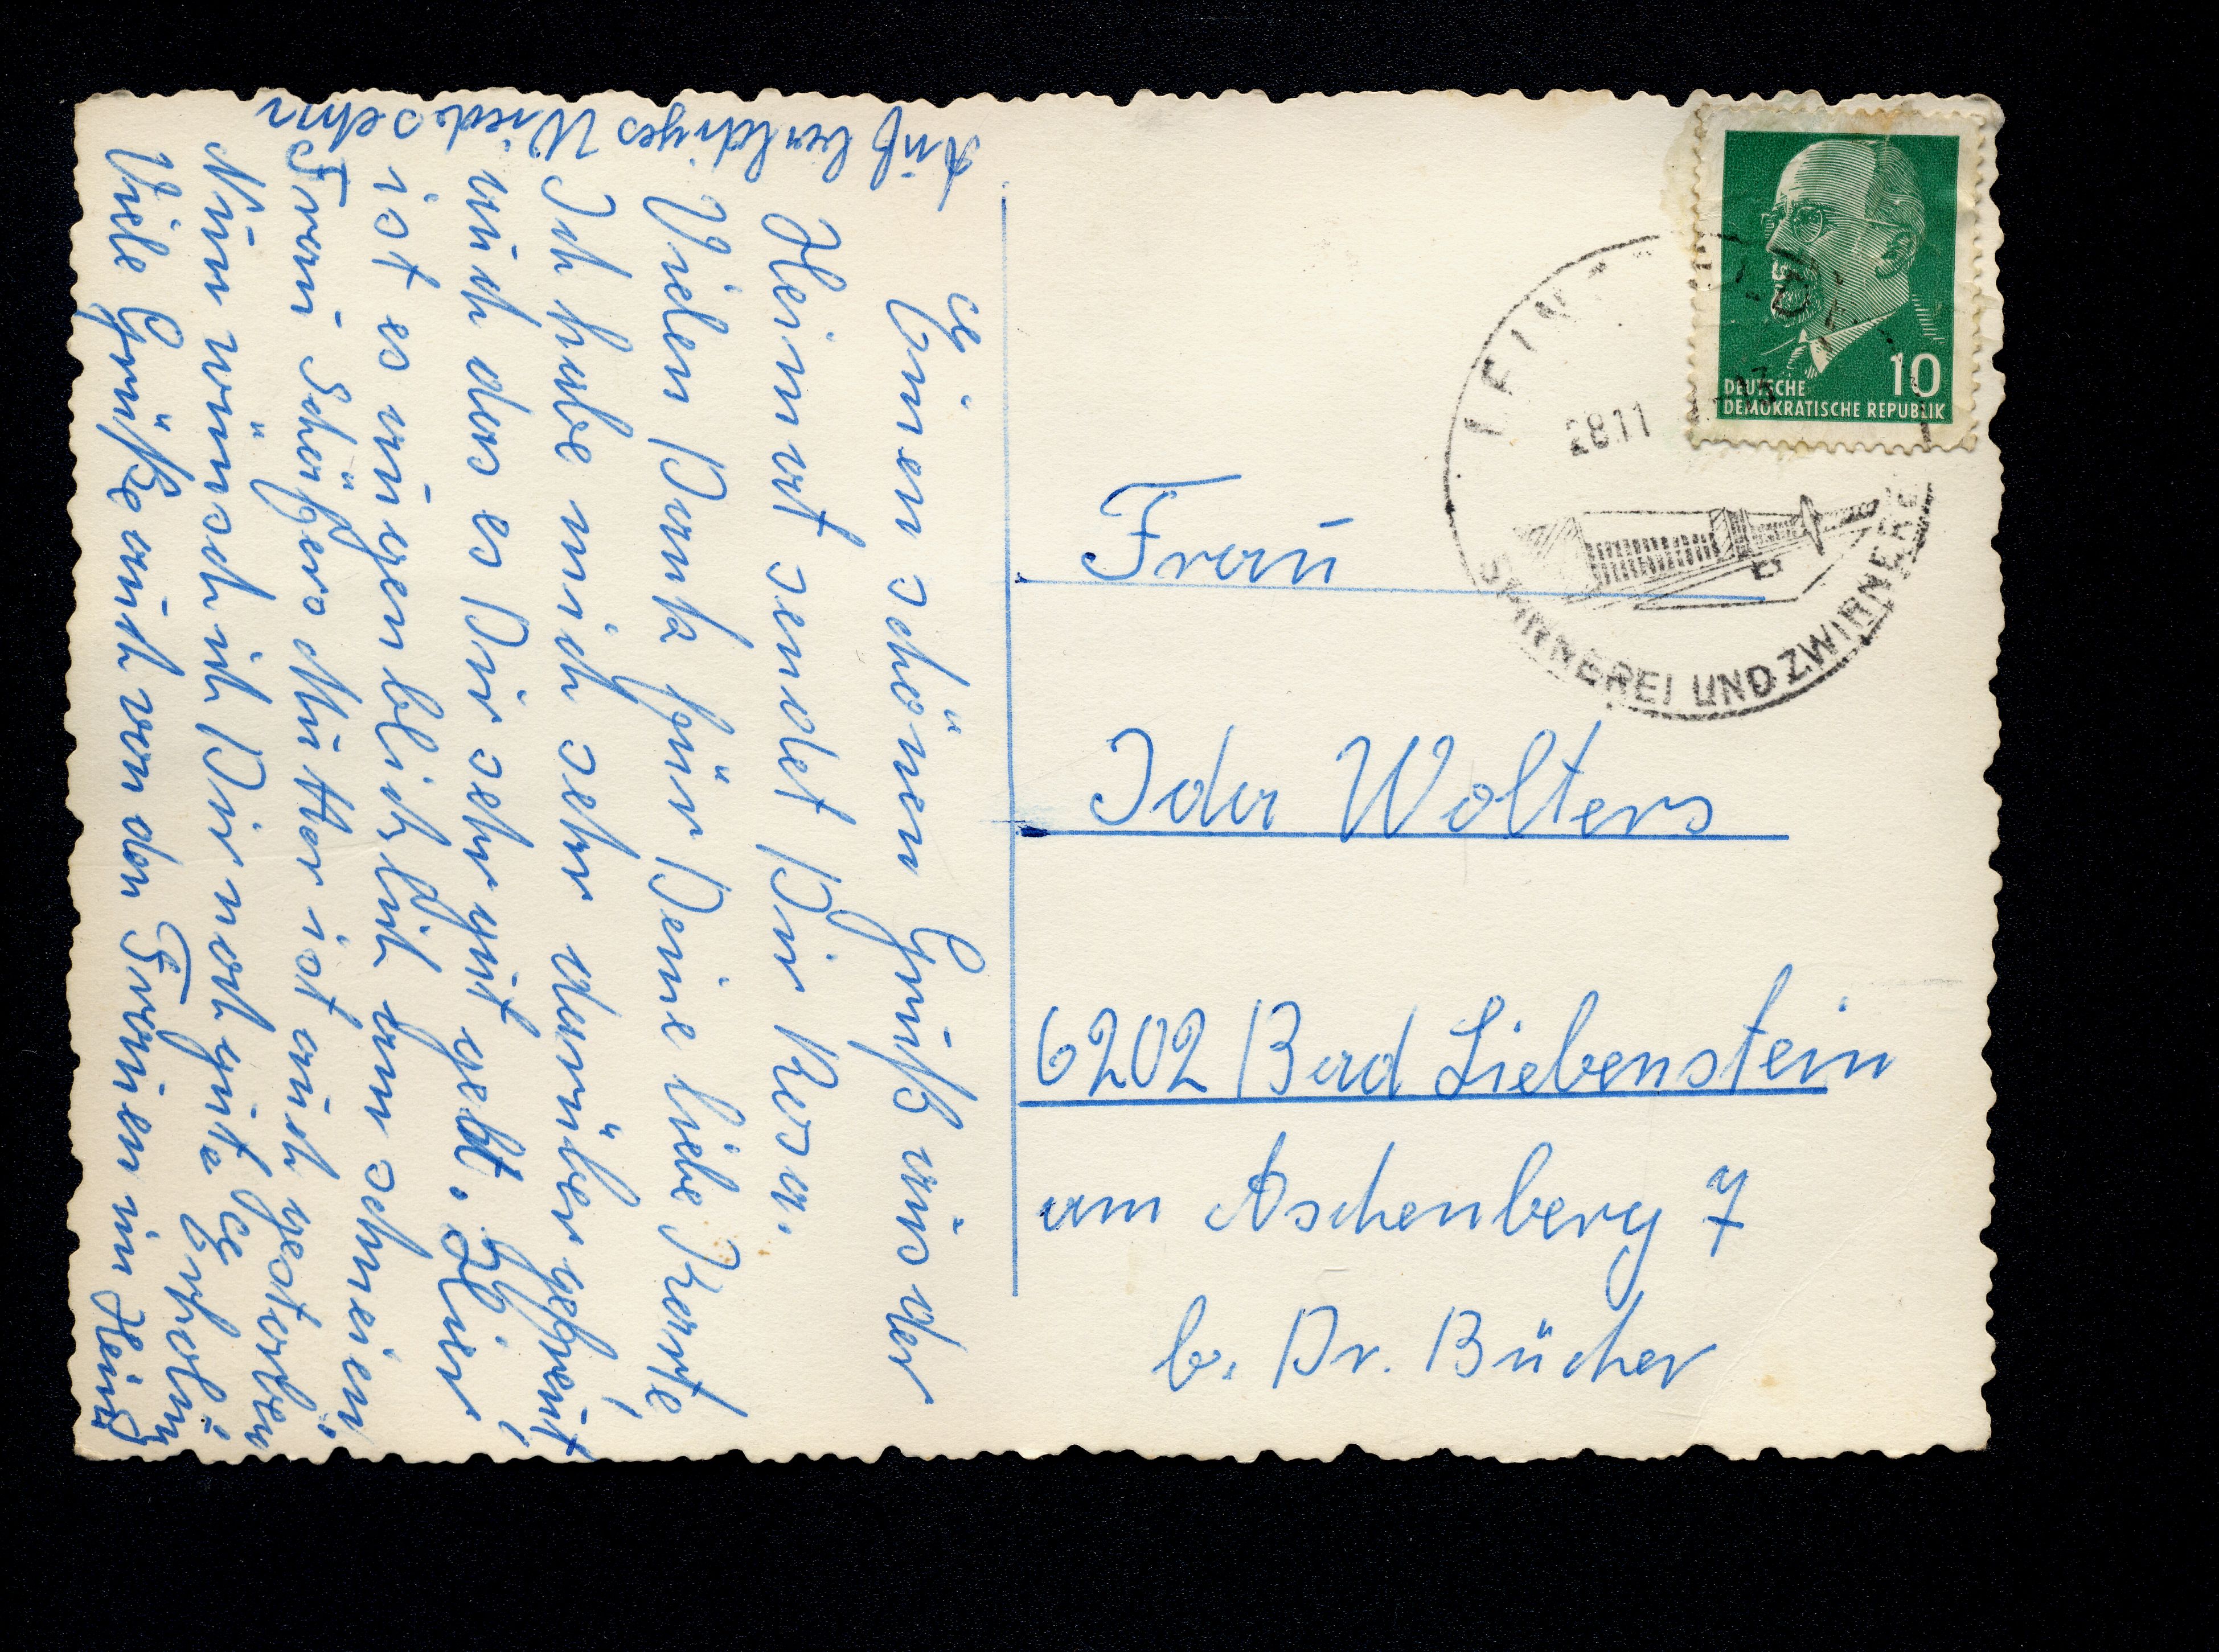 Einen schönen Gruß aus der
Heimat sendet Dir Rosa.
Vielen Dank für Deine liebe Karte
Ich habe mich sehr darüber gefreut
auch das es Dir sehr gut geht. Hier
ist es augenblicklich am schneien
Frau Schäfers Mutter ist auch gestorben
Nun wünsch ich Dir noch gute Erholung
Viele Grüße auch von den Frauen im Heim
Auf baldiges Wiedersehn
Frau
Ida Wolters
6202 Bad Liebenstein
am Aschenberg 7
b. Dr. Bücher
10
DEUTSCHE
DEMOKRATISCHE REPUBLIK
28.11
SPINNEREI UND ZWIRNEREI